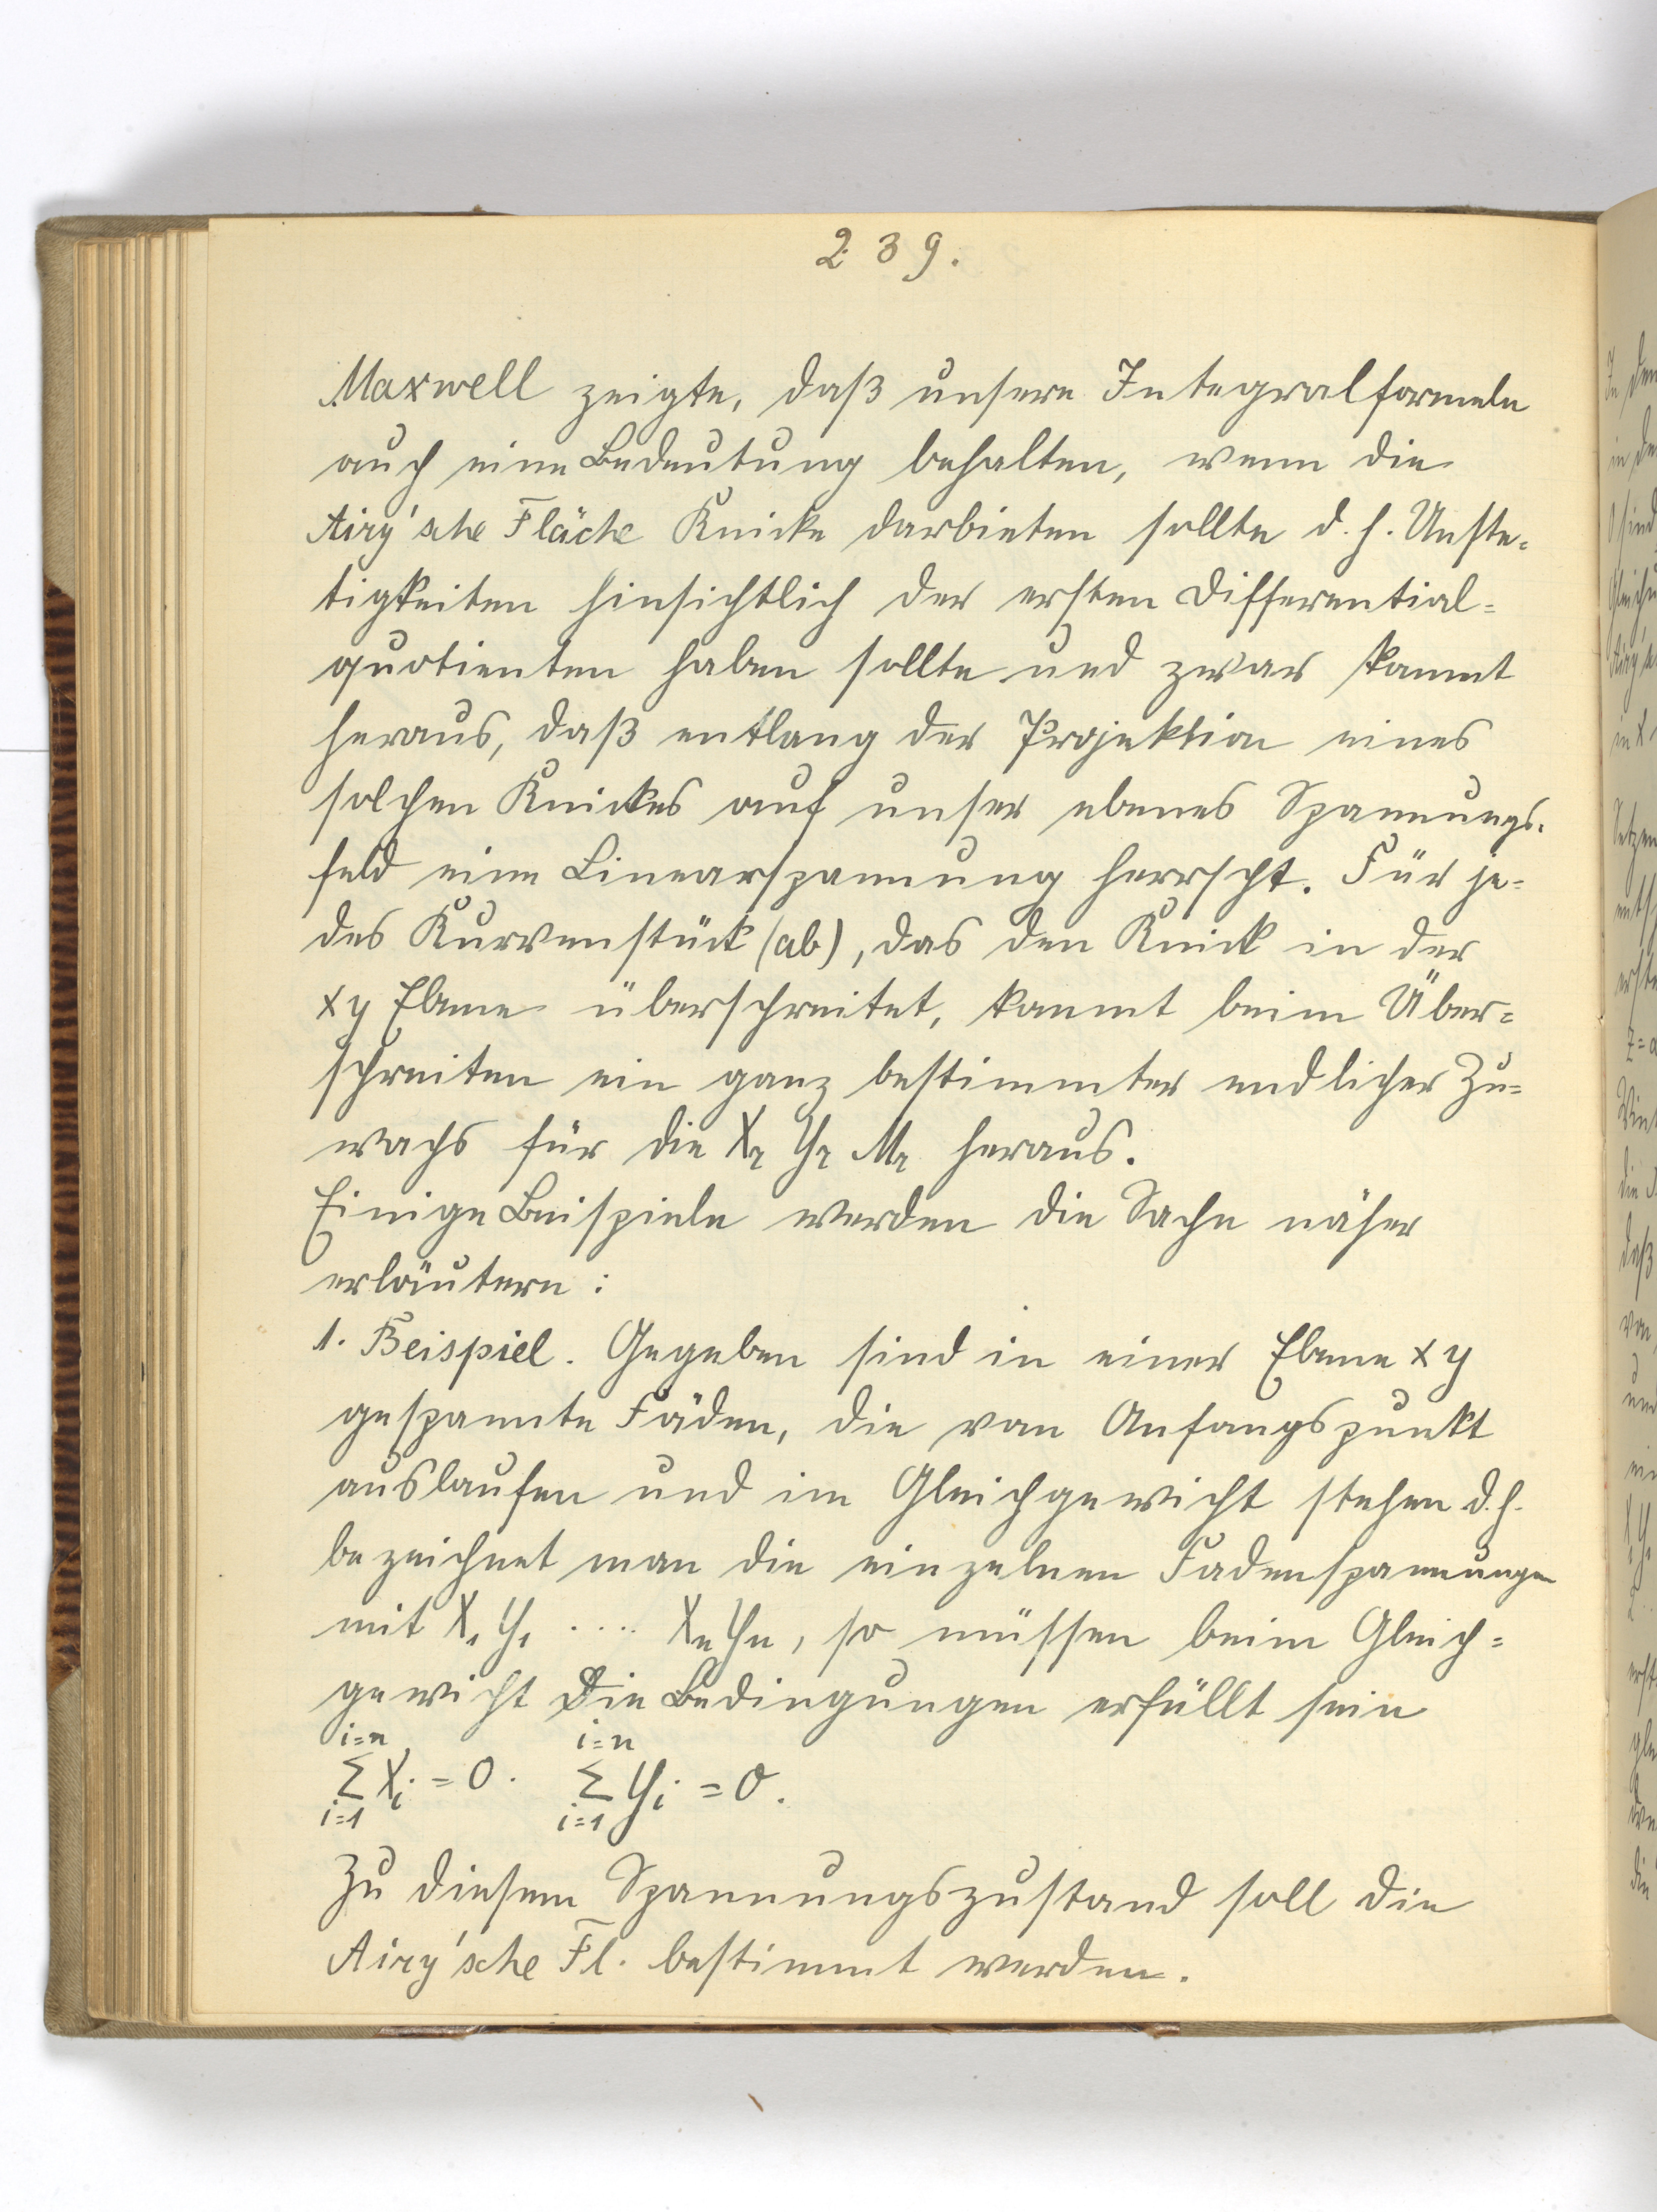 239.
Maxwell zeigte, daß unsere Integralformeln
auch eine Bedeutung behalten, wenn die
Airy'sche Fläche Knicke darbieten sollte d. h. Unste-
tigkeiten hinsichtlich der ersten Differential-
quotienten haben sollte und zwar kommt
heraus, daß entlang der Projektion eines
solchen Knickes auf unser ebenes Spannungs-
feld eine Linearspannung herrscht. Für je-
des Kurvenstück (ab), das den Knick in der
xy Ebene überschreitet, kommt beim Über-
schreiten ein ganz bestimmter endlicher Zu-
wachs für die X₂ Y₂ M₂ heraus.
Einige Beispiele werden die Sache näher
erläutern:
1. Beispiel. Gegeben sind in einer Ebene xy
gespannte Fäden, die vom Anfangspunkt
auslaufen und im Gleichgewicht stehen d.h.
bezeichnet man die einzelnen Fadenspannungen
mit X₁ Y₁ .... Xn Yn, so müssen beim Gleich-
gewicht die Bedingungen erfüllt sein
i=n i=n
Σ Xi = 0. Σ Yi = 0.
i=1 i=1
Zu diesem Spannungszustand soll die
Airy'sche Fl. bestimmt werden.